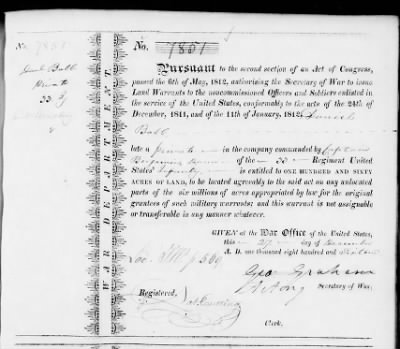 No. 7851
No. 7851
Ball
Private
33
WAR DEPARTMENT.
Pursuant to the second section of an Act of Congress,
passed the 6th of May, 1812, authorising the Secretary of War to issue
Land Warrants to the noncommissioned Officers and Soldiers enlisted
in the service of the United States, conformably to the acts of the 24th of
December, 1811, and of the 11th of January, 1812,
Ball
late a private in the company commanded by Captain
Benjamin of the 33 Regiment United
States' Infantry is entitled to ONE HUNDRED AND SIXTY
ACRES OF LAND, to be located agreeably to the said act on any unlocated
parts of the six millions of acres appropriated by law for the original
grantees of such military warrants; and this warrant is not assignable
or transferable in any manner whatever.
GIVEN at the War Office of the United States,
this 27 day of December
A. D. one thousand eight hundred and sixteen
Geo Graham
Actong Secretary of War.
Registered,
Clerk.